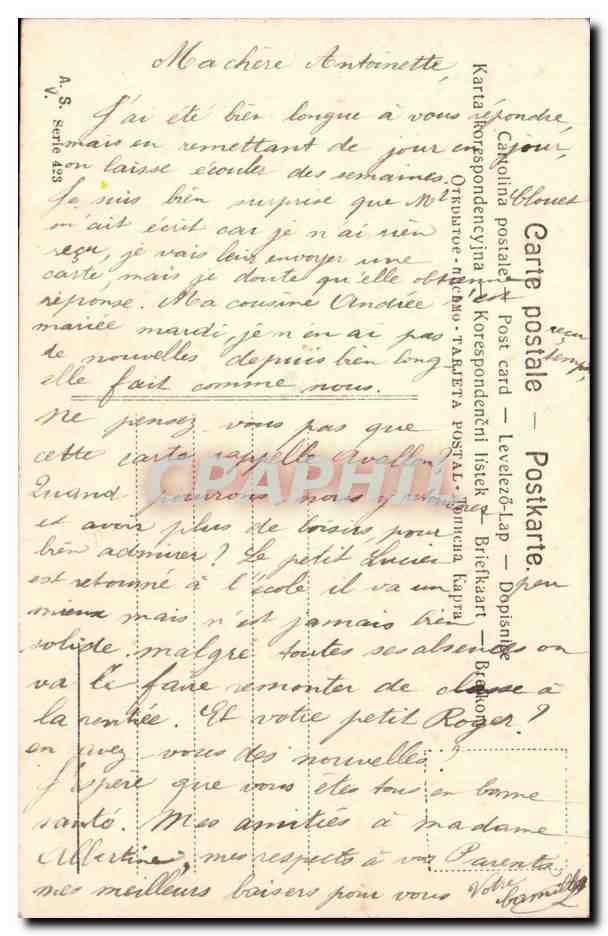 Ma chère Antoinette,
J'ai été bien longue à vous répondre,
mais en remettant de jour en jour,
on laisse écouler des semaines.
Je suis bien surprise que Me Clouet
m'ait écrit car je n'ai rien
reçu, je vais leur envoyer une
carte, mais je doute qu'elle obtienne
réponse. Ma cousine Andrée s'est
mariée mardi, je n'en ai pas reçu
de nouvelles depuis bien longtemps,
elle fait comme nous.
Ne pensez vous pas que
cette carte rappelle Avallon?
Quand pourrons nous y retourner
et avoir plus de loisirs, pour
bien admirer? Le petit Lucien
est retourné à l'école il va un peu
mieux mais n'est jamais bien
solide. malgré toutes ses absences on
va le faire remonter de classe à
la rentrée. Et votre petit Roger?
en avez vous des nouvelles?
J'espère que vous êtes tous en bonne
santé. Mes amitiés à madame
Albertine, mes respects à vos Parents
mes meilleurs baisers pour vous
Votre
Camille
A. S.
V. Serie 423
Carte postale — Postkarte.
Cartolina postale — Post card — Levelező-Lap — Dopisnice
Karta korespondencyjna — Korespondenční lístek — Briefkaart —
Открытое - письмо - TARJETA POSTAL - Дописна Карта
CPAPHIL